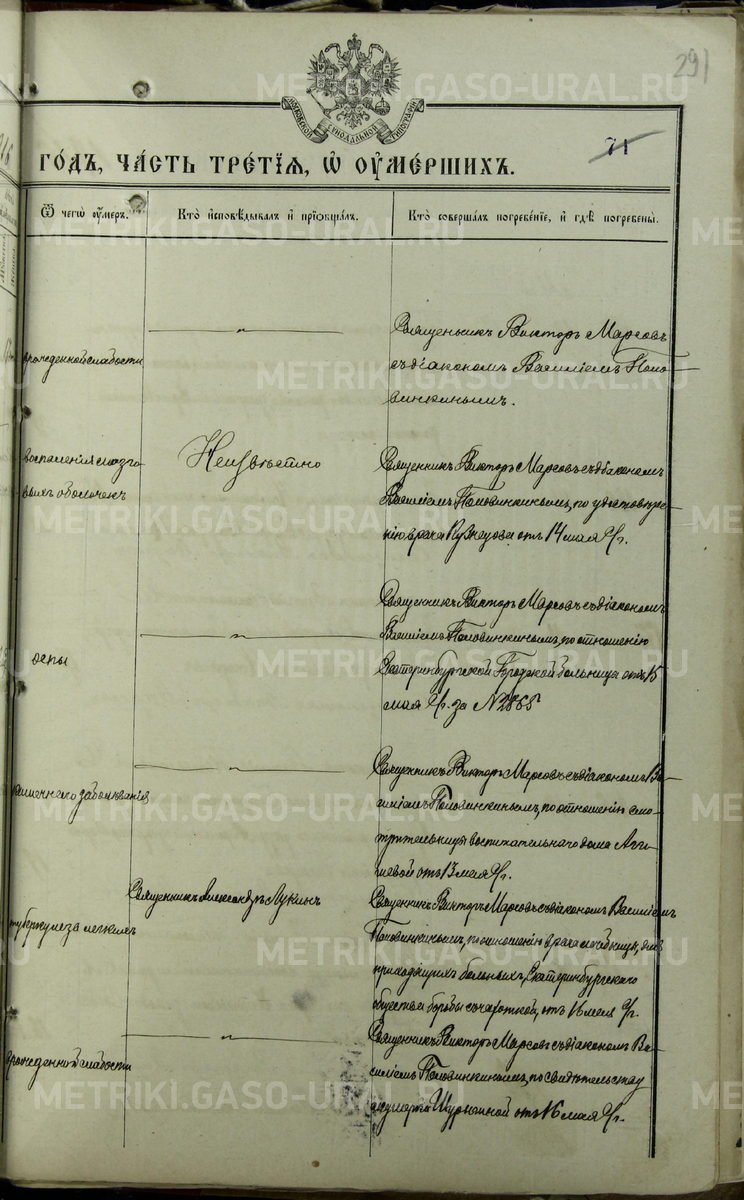 291
71
МОСКОВСКОЙ СѴНОДАЛЬНОЙ ТИПОГРАФІИ
ГОДЪ, ЧАСТЬ ТРЕТІЯ, Ѽ ОУМЕРШИХЪ.
Ѿ чегѡ оумеръ.
Кто исповѣдывалъ и пріобщалъ.
Кто совершалъ погребеніе, и гдѣ погребены.
врожденной слабости
Священникъ Викторъ Марсовъ
съ діакономъ Василіемъ Поло-
винкинымъ.
воспаленія мозго-
выхъ оболочекъ
Неизвѣстно
Священникъ Викторъ Марсовъ съ діакономъ
Василіемъ Половинкинымъ, по удостовѣре-
нію врача Кузнецова отъ 14 мая с/г.
оспы
Священникъ Викторъ Марсовъ съ діакономъ
Василіемъ Половинкинымъ, по отношенію
Екатеринбургской Городской больницы отъ 15
мая с/г. за №2865
кишечнаго заболѣванія
Священникъ Викторъ Марсовъ съ діакономъ Ва-
силіемъ Половинкинымъ, по отношенію смо-
трительницы воспитательнаго дома
отъ 13 мая с/г.
туберкулеза легкихъ
Священникъ Александръ Лукинъ
Священникъ Викторъ Марсовъ съ діакономъ Василіемъ
Половинкинымъ, по отношенію врача лечебницы, для
приходящихъ больныхъ, Екатеринбургскаго
общества борьбы съ чахоткой, отъ 16 мая с/г.
врожденной слабости
Священникъ Викторъ Марсовъ съ діакономъ Ва-
силіемъ Половинкинымъ, по свидѣтельству
акушерки отъ 16 мая с/г.
METRIKI.GASO-URAL.RU